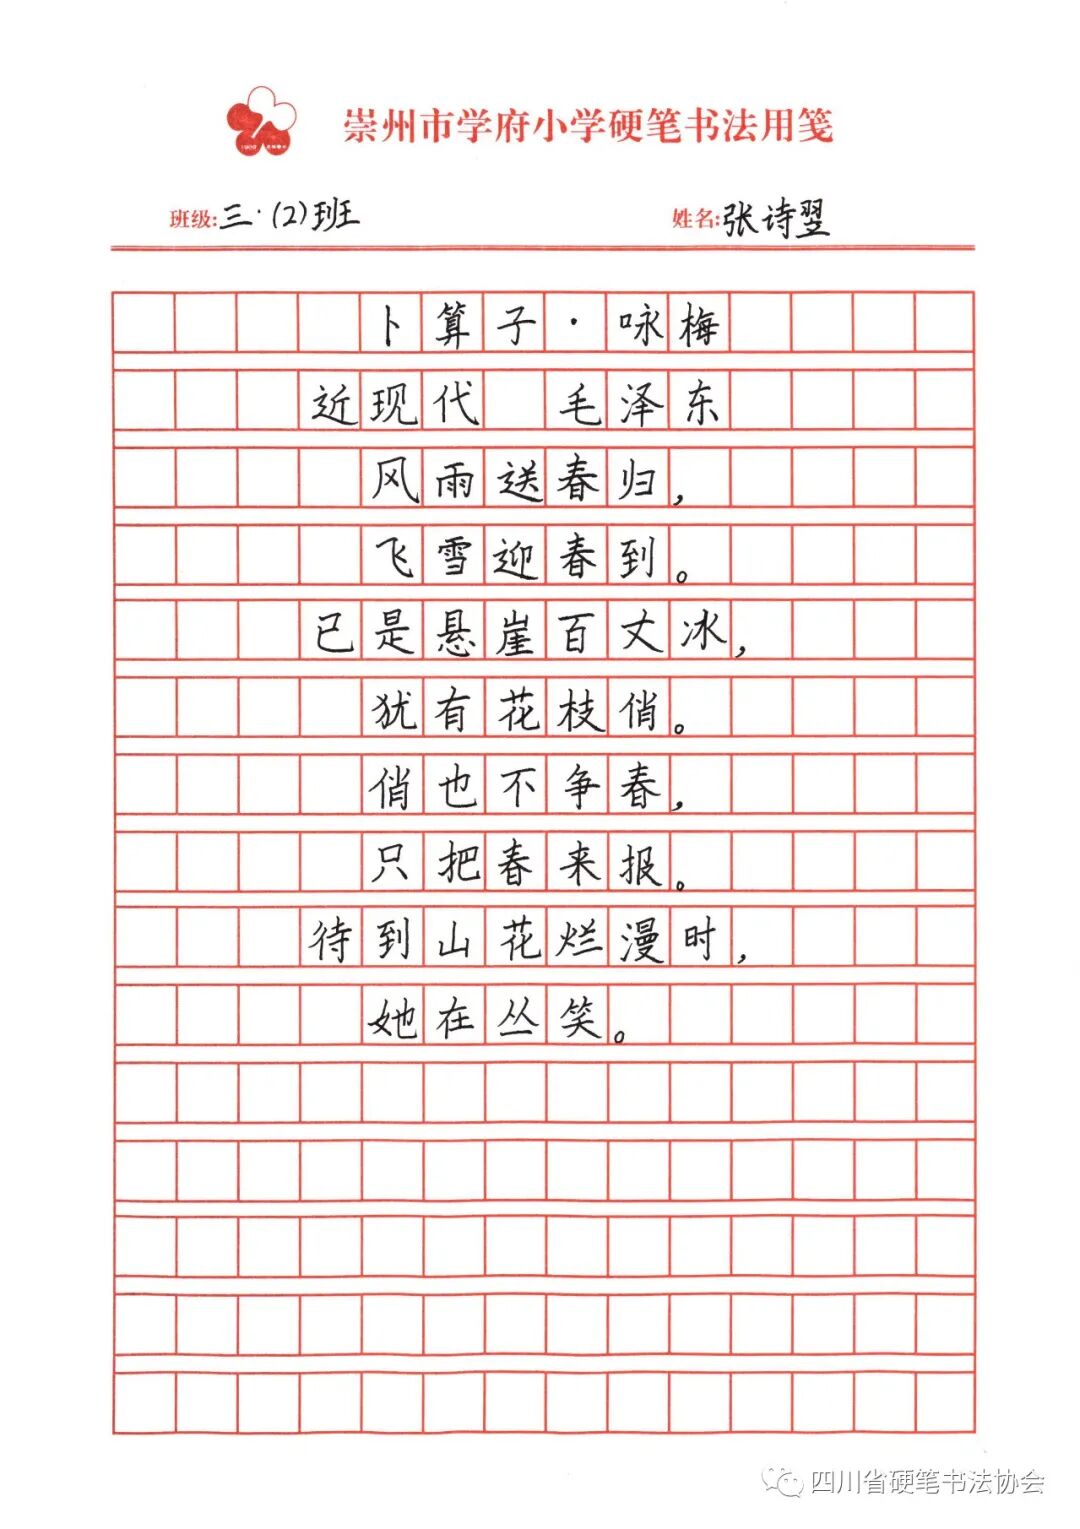 崇州市学府小学硬笔书法用笺
班级:三·(2)班 姓名:张诗翌
卜算子·咏梅
近现代 毛泽东
风雨送春归，
飞雪迎春到。
已是悬崖百丈冰，
犹有花枝俏。
俏也不争春，
只把春来报。
待到山花烂漫时，
她在丛笑。
四川省硬笔书法协会